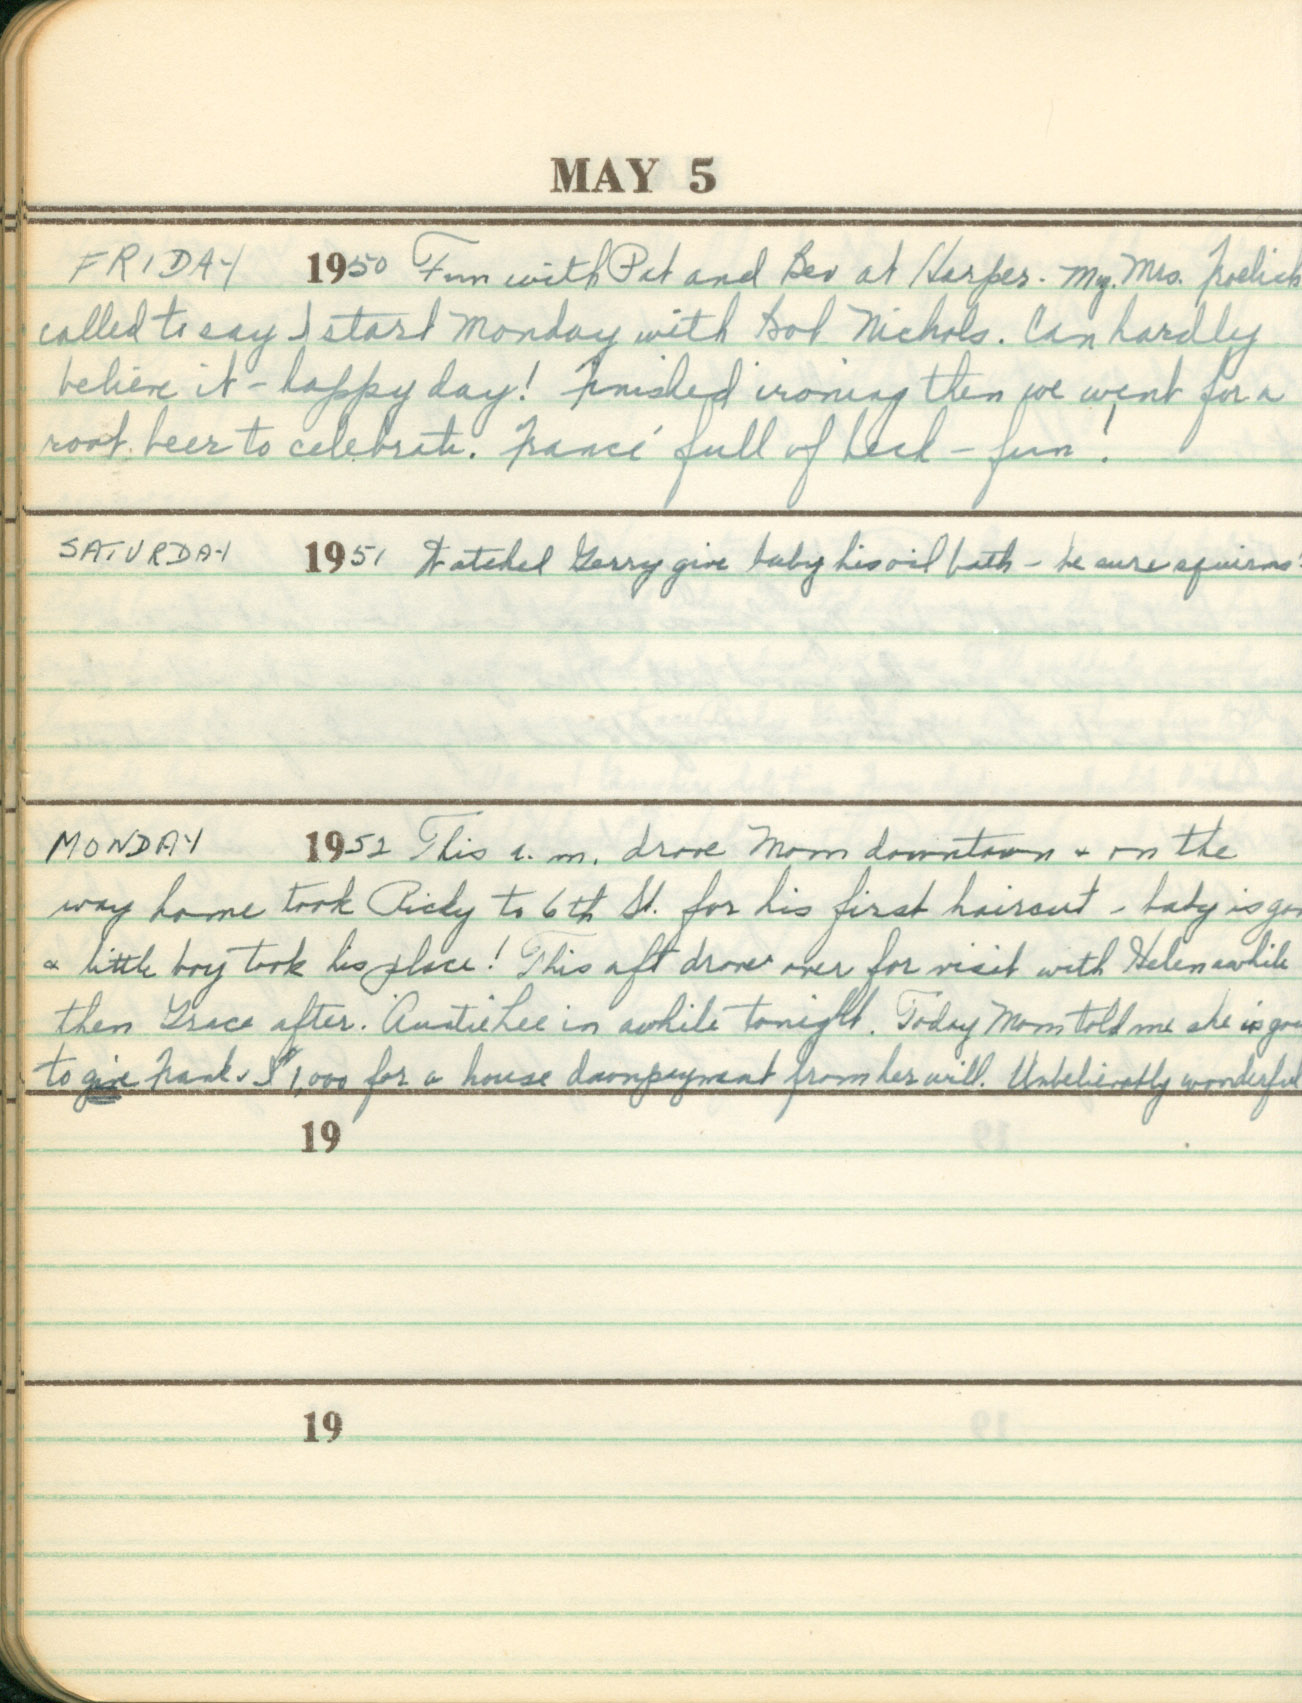 MAY 5
FRIDAY 1950 Fun with Pat and Bev at Harper. My Mrs. Froelich
called to say I start Monday with Bob Nichols. Can hardly
believe it - happy day! Finished ironing then we went for a
root beer to celebrate. France' full of heck - fun!
SATURDAY 1951 Watched Gerry give baby his oil bath - he sure squirms!
MONDAY 1952 This a.m. drove Mom downtown & on the
way home took Ricky to 6th St. for his first haircut - baby is gon
& little boy took his place! This aft drove over for visit with Helen awhile
then Grace after. Auntie Lee in awhile tonight. Today Mom told me she is goi
to give Frank & I $1,000 for a house downpayment from her will. Unbelievably wonderful
19
19